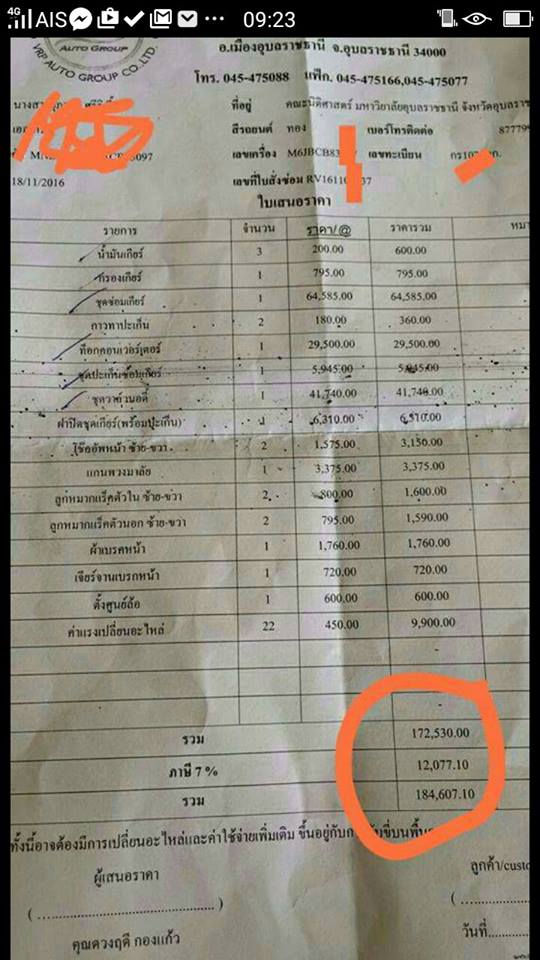 4G AIS ... 09:23
AUTO GROUP
VRP AUTO GROUP CO.,LTD.
อ.เมืองอุบลราชธานี จ.อุบลราชธานี 34000
โทร. 045-475088 แฟ็ก. 045-475166,045-475077
นางสา ที่อยู่ คณะนิติศาสตร์ มหาวิทยาลัยอุบลราชธานี จังหวัดอุบลราช
สีรถยนต์ ทอง เบอร์โทรติดต่อ 87779
5097 เลขเครื่อง M6JBCB83 เลขทะเบียน กร10
18/11/2016 เลขที่ใบสั่งซ่อม RV1611 37
ใบเสนอราคา
รายการ จำนวน ราคา/@ ราคารวม หมา
น้ำมันเกียร์ 3 200.00 600.00
กรองเกียร์ 1 795.00 795.00
ชุดซ่อมเกียร์ 1 64,585.00 64,585.00
กาวทาปะเก็น 2 180.00 360.00
ท็อกคอนเวอร์เตอร์ 1 29,500.00 29,500.00
ชุดปะเก็นซ่อมเกียร์ 1 5,945.00 5,945.00
ชุดวาล์วบอดี้ 1 41,740.00 41,740.00
ฝาปิดชุดเกียร์(พร้อมปะเก็น) 6,310.00 6,310.00
โช๊คอัพหน้า ซ้าย-ขวา 2 1,575.00 3,150.00
แกนพวงมาลัย 1 3,375.00 3,375.00
ลูกหมากแร็คตัวใน ซ้าย-ขวา 2 800.00 1,600.00
ลูกหมากแร็คตัวนอก ซ้าย-ขวา 2 795.00 1,590.00
ผ้าเบรคหน้า 1 1,760.00 1,760.00
เจียร์จานเบรกหน้า 1 720.00 720.00
ตั้งศูนย์ล้อ 1 600.00 600.00
ค่าแรงเปลี่ยนอะไหล่ 22 450.00 9,900.00
-
-
รวม 172,530.00
ภาษี 7 % 12,077.10
รวม 184,607.10
ทั้งนี้อาจต้องมีการเปลี่ยนอะไหล่และค่าใช้จ่ายเพิ่มเติม ขึ้นอยู่กับก ับขี่บนพื้น
ผู้เสนอราคา ลูกค้า/custo
(........................................) (........
คุณดวงฤดี กองแก้ว วันที่.........